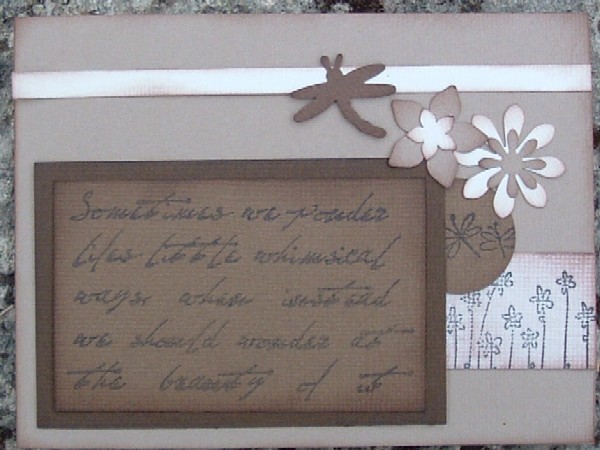 Sometimes we ponder
lifes little whimsical
ways, when instead
we should wonder at
the beauty of it